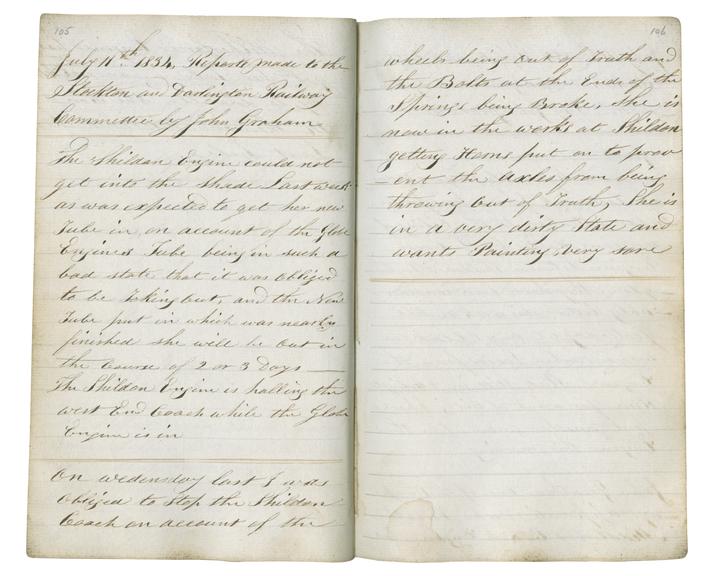 105
July 11th 1834. Reports made to the
Stockton and Darlington Railway
Committee by John Graham
The Shildon Engine could not
get into the shade Last week
as was expected to get her new
Tube in, on account of the Globe
Engines Tube being in such a
bad state that it was obliged
to be Teking out, and the New
Tube put in which was nearly
finished she will be out in
the Course of 2 or 3 Days
The Shildon Engine is halling the
west End Coach while the Globe
Engine is in
On wedensday last I was
obliged to stop the Shildon
Coach on account of the
106
wheels being out of Truth and
the Bolts at the Ends of the
Springs being Broke, She is
now in the works at Shildon
getting Horns put on to prev
-ent the axles from being
throwing out of Truth, She is
in a very dirty state and
wants Painting very sore